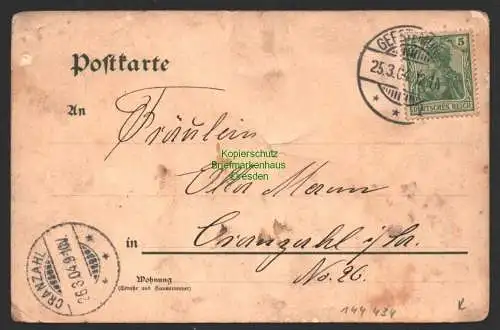 Postkarte
5
DEUTSCHES REICH
25.3.04
An
Fräulein
Kopierschutz
Briefmarkenhaus
Dresden
in Cranzahl i/Sa.
No. 26.
Wohnung
(Straße und Hausnummer)
CRANZAHL
26.3.04.9-10V.
144 434